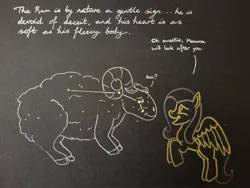 The Ram is by nature a gentle sign... he is
devoid of deceit, and his heart is as
soft as his fleecy body.
Oh sweetie, Momma
will look after you.
Baa?